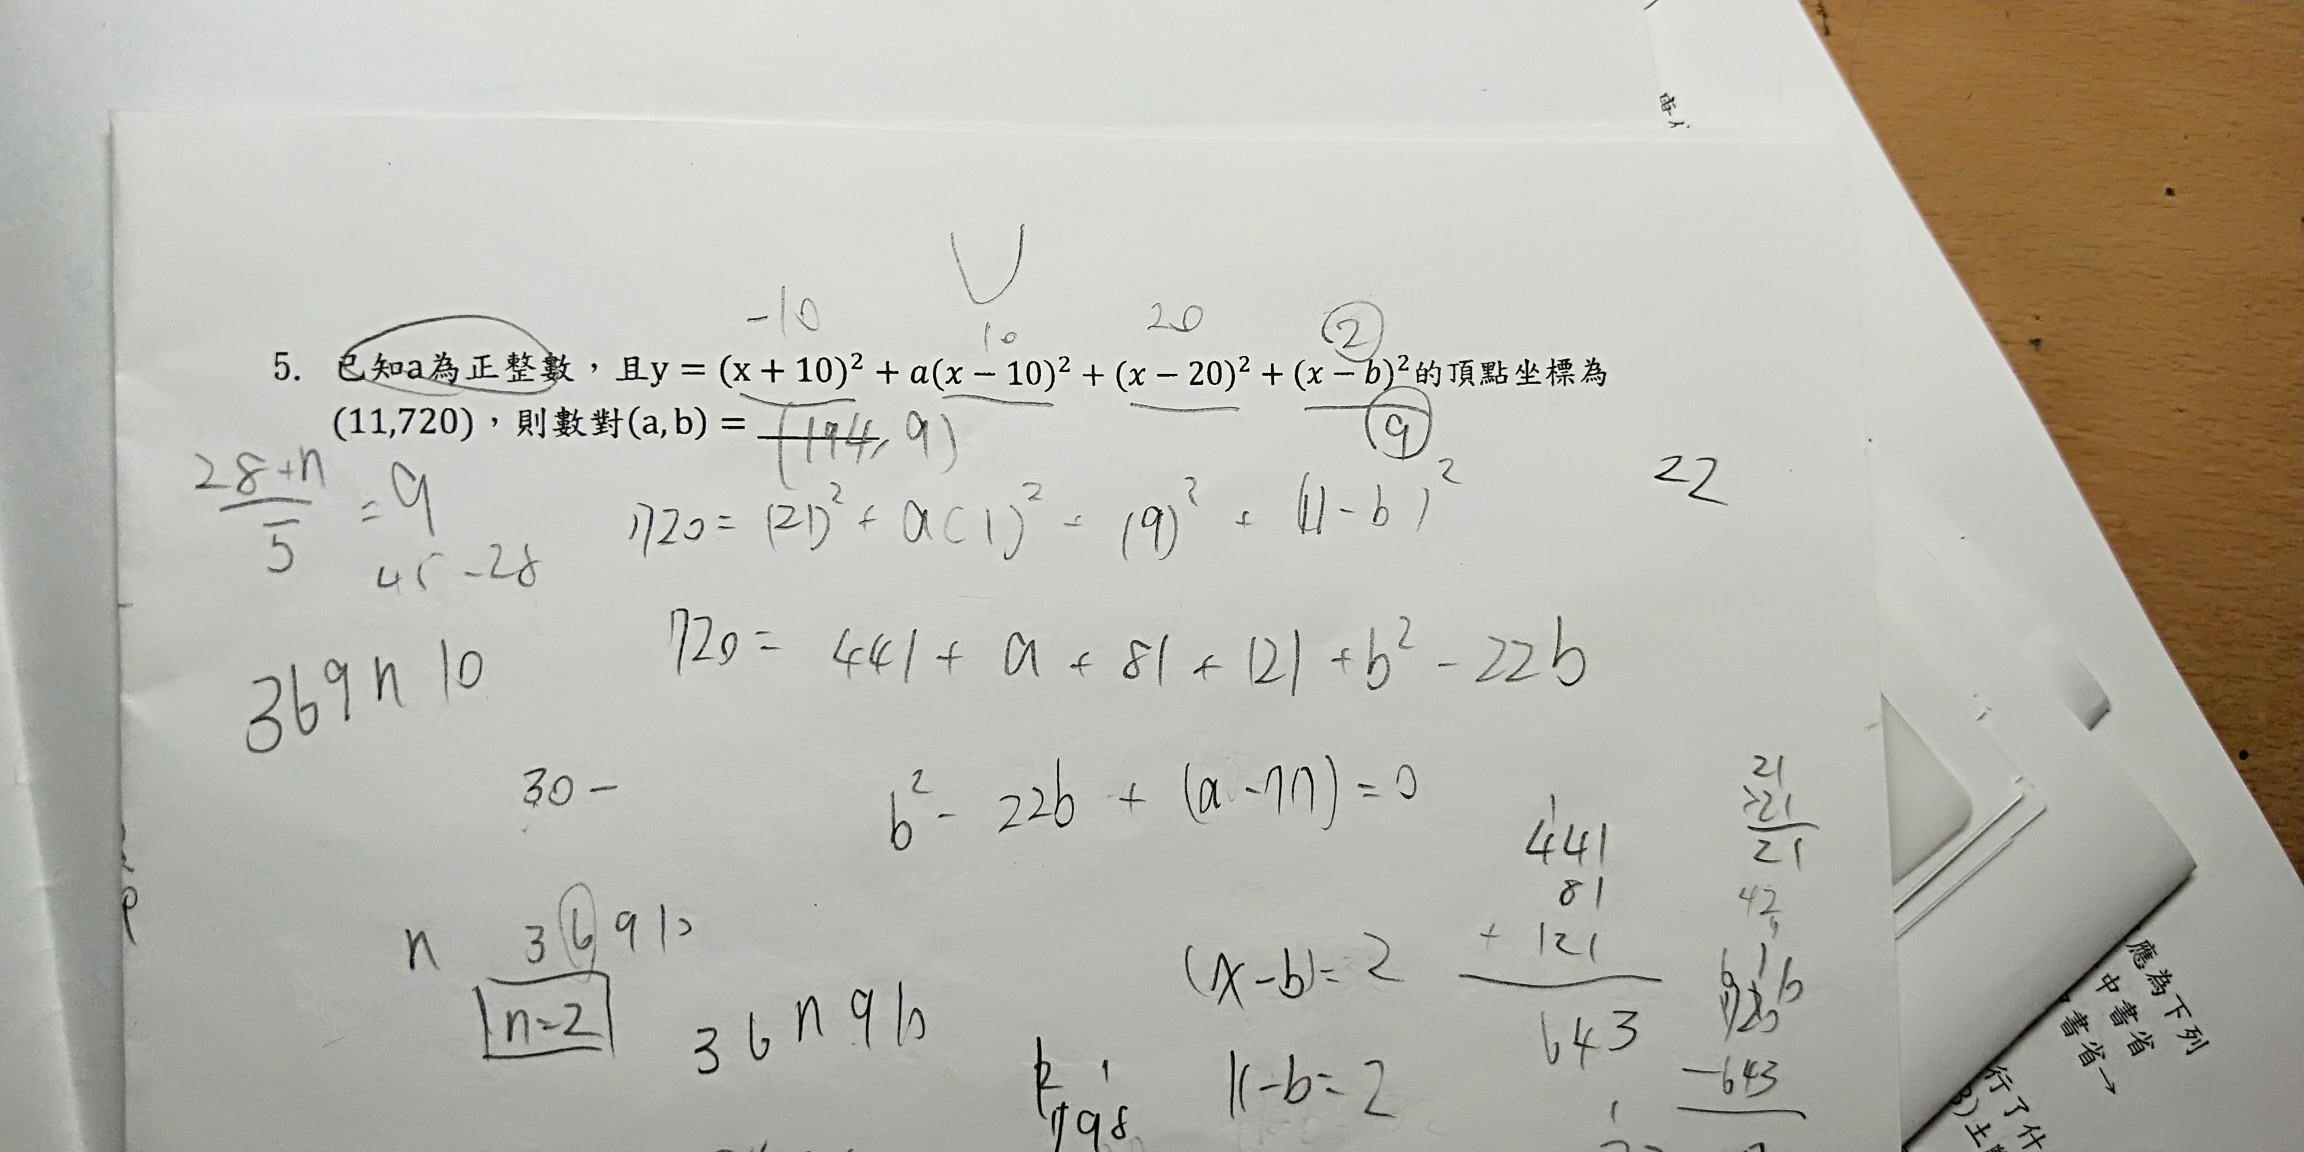 -10
10
20
2
5. 已知a為正整數，且y = (x + 10)² + a(x − 10)² + (x − 20)² + (x − b)²的頂點坐標為
(11,720)，則數對(a, b) = (194, 9)
9
22
28+n
5
= 9
45-28
720 = (21)² + a(1)² - (9)² + (11-b)²
720 = 441 + a + 81 + 121 + b² - 22b
369n 10
30 -
b² - 22b + (a-77) = 0
441
81
+ 121
643
21
21
21
42
720
-643
n 3 6 9 10
n=2
3 6 n 9 10
(x-b)=2
11-b=2
798
應為下列
中書省
書省→
行了什